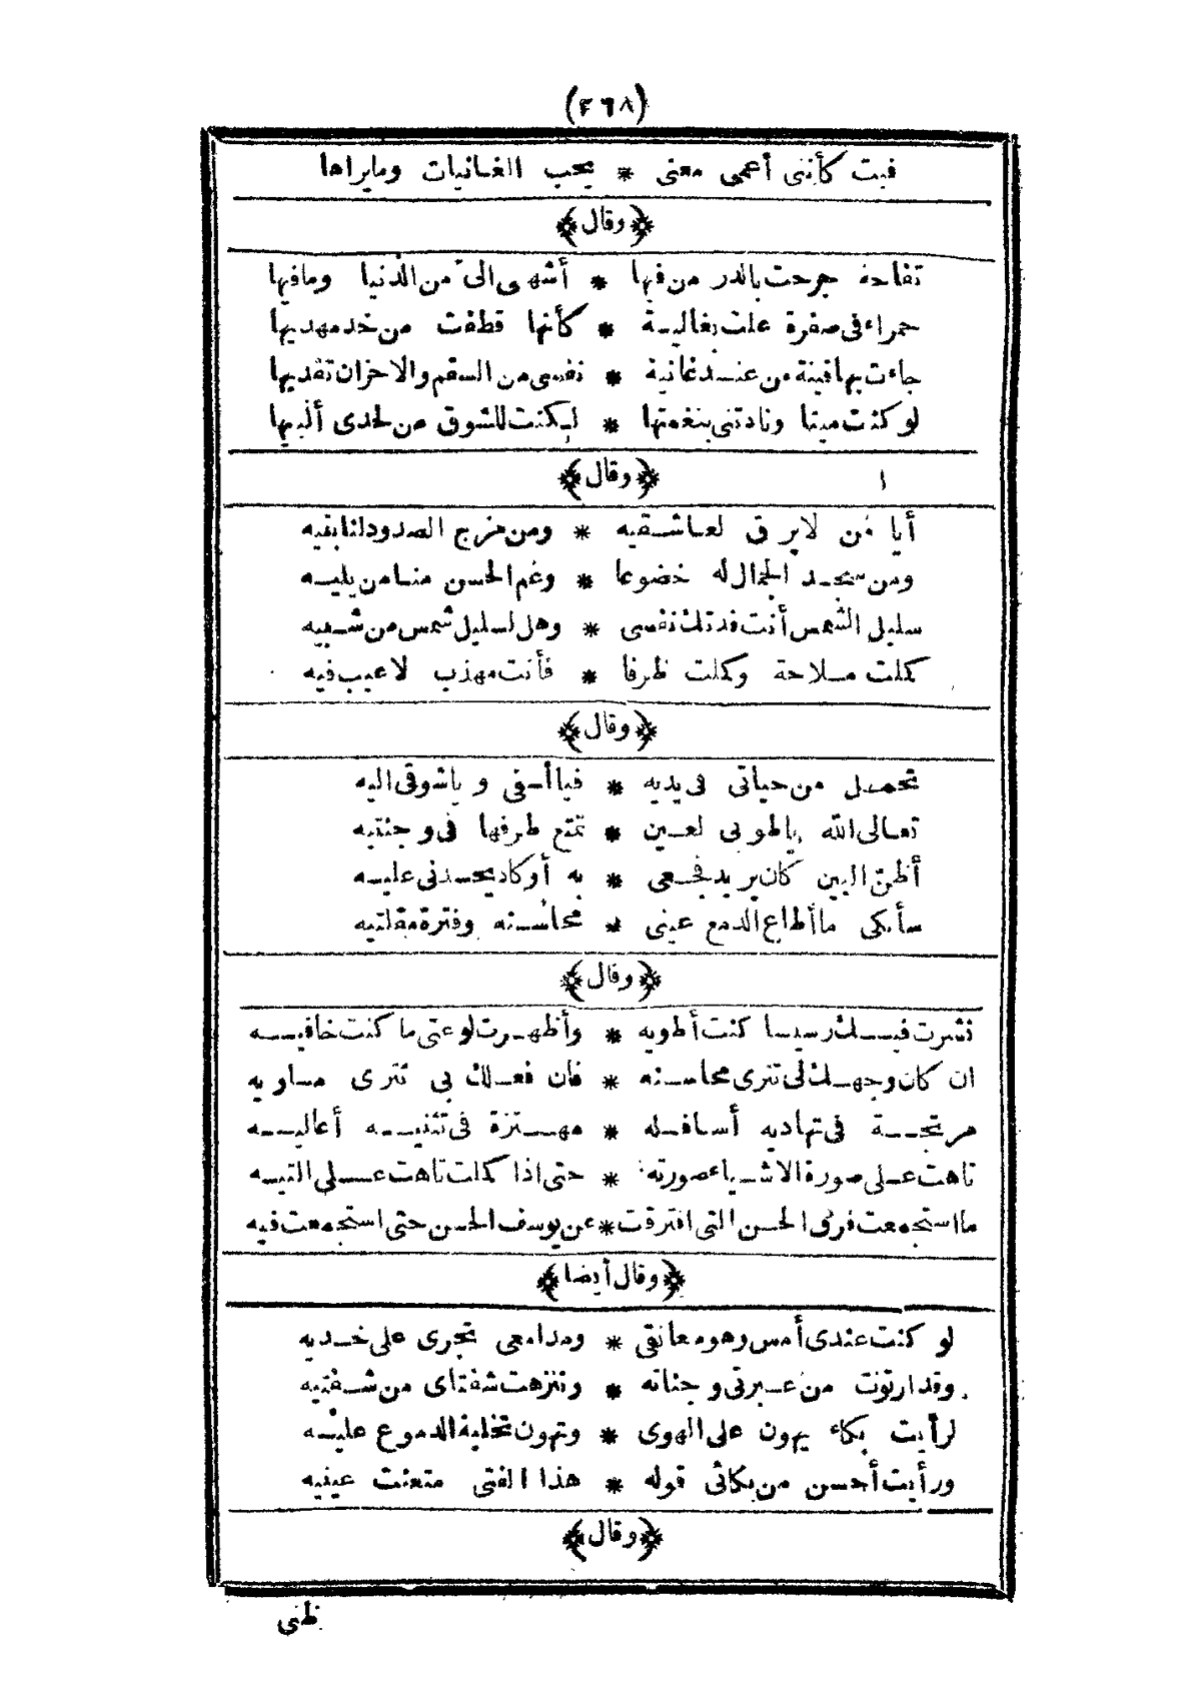 (٤٦٨)
فبت كأننى أعمى معنى * يحب الغانيات ومايراها
﴿وقال﴾
تفاحة جرحت بالدر من فيها * أشهى الىّ من الدنيا ومافيها
حمراء فى صفرة علت بغالية * كأنها قطفت من خد مهديها
جاءت بها قينة من عند غانية * نفسى من السقم والاحزان تفديها
لو كنت ميتا ونادتنى بنغمتها * لكنت للشوق من لحدى ألبيها
﴿وقال﴾
أيا من لايرق لعاشقيه * ومن مزج الصدود لنا بتيه
ومن سجد الجمال له خضوعا * وعم الحسن منا من يليه
سليل الشمس أنت فدتك نفسى * وهل لسليل شمس من شبيه
كملت ملاحة وكملت ظرفا * فأنت مهذب لاعيب فيه
﴿وقال﴾
تحمل من حياتى فى يديه * فيا أسفى و ياشوقى اليه
تعالى الله ياطوبى لعين * تمتع طرفها فى وجنتيه
أظن البين كان يريد فجعى * به أوكاد يحسدنى عليه
سأبكى ماأطاع الدمع عينى * محاسنه وفترة مقلتيه
﴿وقال﴾
نشرت فيك رسيسا كنت أطويه * وأظهرت لوعتى ما كنت خافيه
ان كان وجهك لى تترى محاسنه * فان فعلك بى تترى مساويه
مرتجة فى تهاديه أسافله * مهتزة فى تثنيه أعاليه
تاهت على صورة الاشياء صورته * حتى اذا كملت تاهت على التيه
مااستجمعت فرق الحسن التى افترقت * عن يوسف الحسن حتى استجمعت فيه
﴿وقال أيضا﴾
لو كنت عندى أمس وهو معانقى * ومدامعى تجرى على خديه
وقد ارتوت من عبرتى وجناته * وتنزهت شفتاى من شفتيه
لرأيت بكاء يهون على الهوى * وتهون تخلية الدموع عليه
ورأيت أحسن من بكائى قوله * هذا الفتى متعنت عينيه
﴿وقال﴾
ظنى